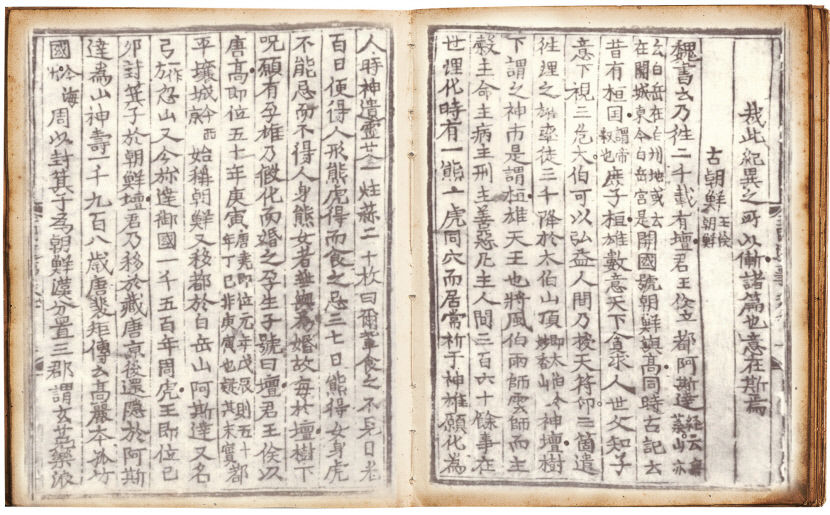 哉此紀異之所以慚諸篇也意在斯焉
古朝鮮王倹朝鮮
魏書云乃往二千載有壇君王倹立都阿斯達経云無葉山亦
云白岳在白州地或云在開城東今白岳宮是開國號朝鮮與高同時古記云
昔有桓国謂帝釋也庶子桓雄數意天下貪求人世父知子
意下視三危太伯可以弘益人間乃授天符印三箇遣
徃理之雄率徒三千降於太伯山頂即太伯今妙香山神壇樹
下謂之神市是謂桓雄天王也將風伯雨師雲師而主
穀主命主病主刑主善惡凡主人間三百六十餘事在
世理化時有一熊一虎同穴而居常祈于神雄願化為
人時神遺靈艾一炷蒜二十枚曰爾輩食之不見日光
百日便得人形熊虎得而食之忌三七日熊得女身虎
不能忌而不得人身熊女者無與為婚故每於壇樹下
呪願有孕雄乃假化而婚之孕生子號曰壇君王倹以
唐高即位五十年庚寅唐堯即位元年戊辰則五十年丁巳非庚寅也疑其未實都
平壤城今西京始稱朝鮮又移都於白岳山阿斯達又名
弓一作方忽山又今旀達御國一千五百年周虎王即位己
卯封箕子於朝鮮壇君乃移於藏唐京後還隱於阿斯
達為山神壽一千九百八歳唐裵矩傳云高麗本孤竹
國今海州周以封箕子為朝鮮漢分置三郡謂玄菟樂浪